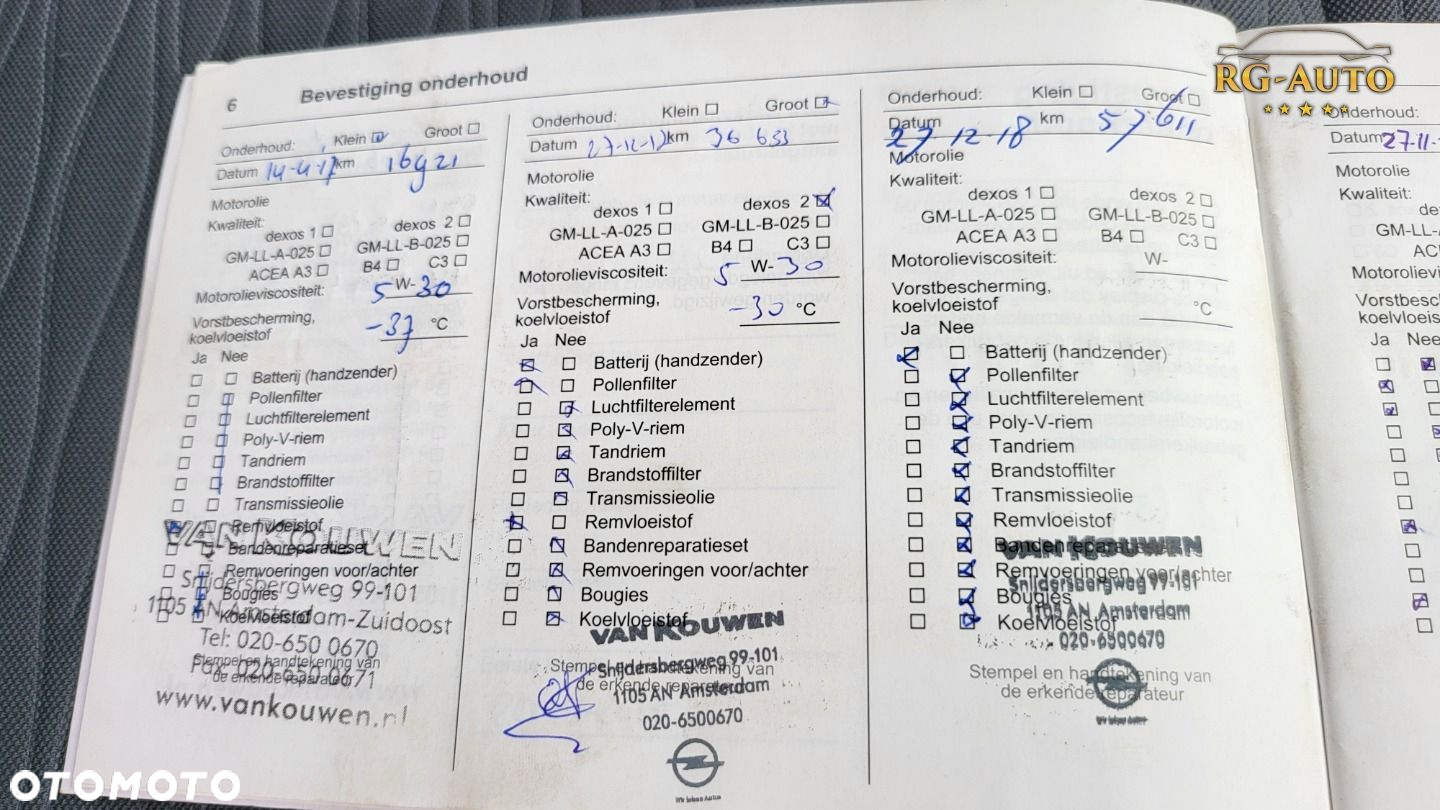 RG-AUTO
6 Bevestiging onderhoud
Onderhoud: Klein Groot
Datum 14-4-17 km 16921
Motorolie
Kwaliteit:
dexos 1 dexos 2
GM-LL-A-025 GM-LL-B-025
ACEA A3 B4 C3
Motorolieviscositeit: 5 W-30
Vorstbescherming,
koelvloeistof -37 °C
Ja Nee
Batterij (handzender)
Pollenfilter
Luchtfilterelement
Poly-V-riem
Tandriem
Brandstoffilter
Transmissieolie
Remvloeistof
VAN KOUWEN
Bandenreparatieset
Remvoeringen voor/achter
Snijdersbergweg 99-101
Bougies
1105 AN Amsterdam-Zuidoost
Koelvloeistof
Tel: 020-650 0670
Stempel en handtekening van
Fax: 020-650 0671
de erkende reparateur
www.vankouwen.nl
Onderhoud: Klein Groot
Datum 27-12-17 km 36 653
Motorolie
Kwaliteit:
dexos 1 dexos 2
GM-LL-A-025 GM-LL-B-025
ACEA A3 B4 C3
Motorolieviscositeit: 5 W-30
Vorstbescherming,
koelvloeistof -30 °C
Ja Nee
Batterij (handzender)
Pollenfilter
Luchtfilterelement
Poly-V-riem
Tandriem
Brandstoffilter
Transmissieolie
Remvloeistof
Bandenreparatieset
Remvoeringen voor/achter
Bougies
Koelvloeistof
VAN KOUWEN
Stempel en handtekening van
Snijdersbergweg 99-101
de erkende reparateur
1105 AN Amsterdam
020-6500670
Wir leben Autos
Onderhoud: Klein Groot
Datum 27-12-18 km 57611
Motorolie
Kwaliteit:
dexos 1 dexos 2
GM-LL-A-025 GM-LL-B-025
ACEA A3 B4 C3
Motorolieviscositeit: W-
Vorstbescherming,
koelvloeistof °C
Ja Nee
Batterij (handzender)
Pollenfilter
Luchtfilterelement
Poly-V-riem
Tandriem
Brandstoffilter
Transmissieolie
Remvloeistof
Bandenreparatieset
VAN KOUWEN
Remvoeringen voor/achter
Snijdersbergweg 99-101
Bougies
1105 AN Amsterdam
Koelvloeistof
020-6500670
Stempel en handtekening van
de erkende reparateur
Wir leben Autos
Onderhoud:
Datum 27-11-
Motorolie
Kwaliteit:
GM-LL-A
ACEA
Motorolievis
Vorstbesch
koelvloeis
Ja Nee
OTOMOTO